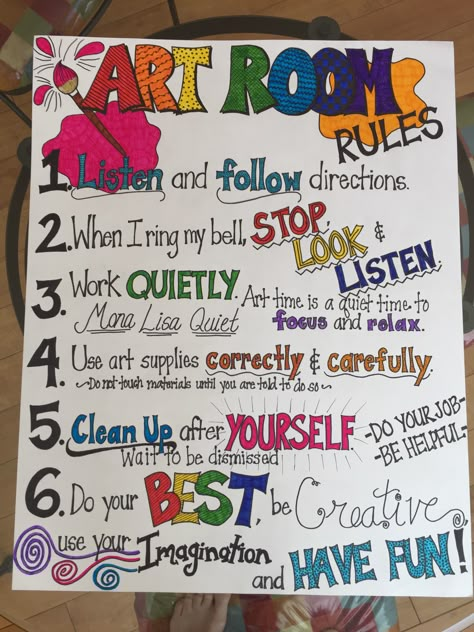 ART ROOM
RULES
1. Listen and follow directions.
2. When I ring my bell, STOP,
LOOK &
LISTEN.
3. Work QUIETLY.
Mona Lisa Quiet
Art time is a quiet time to
focus and relax.
4. Use art supplies correctly & carefully.
~Do not touch materials until you are told to do so~
5. Clean Up after YOURSELF.
Wait to be dismissed
-DO YOUR JOB-
-BE HELPFUL-
6. Do your BEST, be Creative,
use your Imagination
and HAVE FUN!